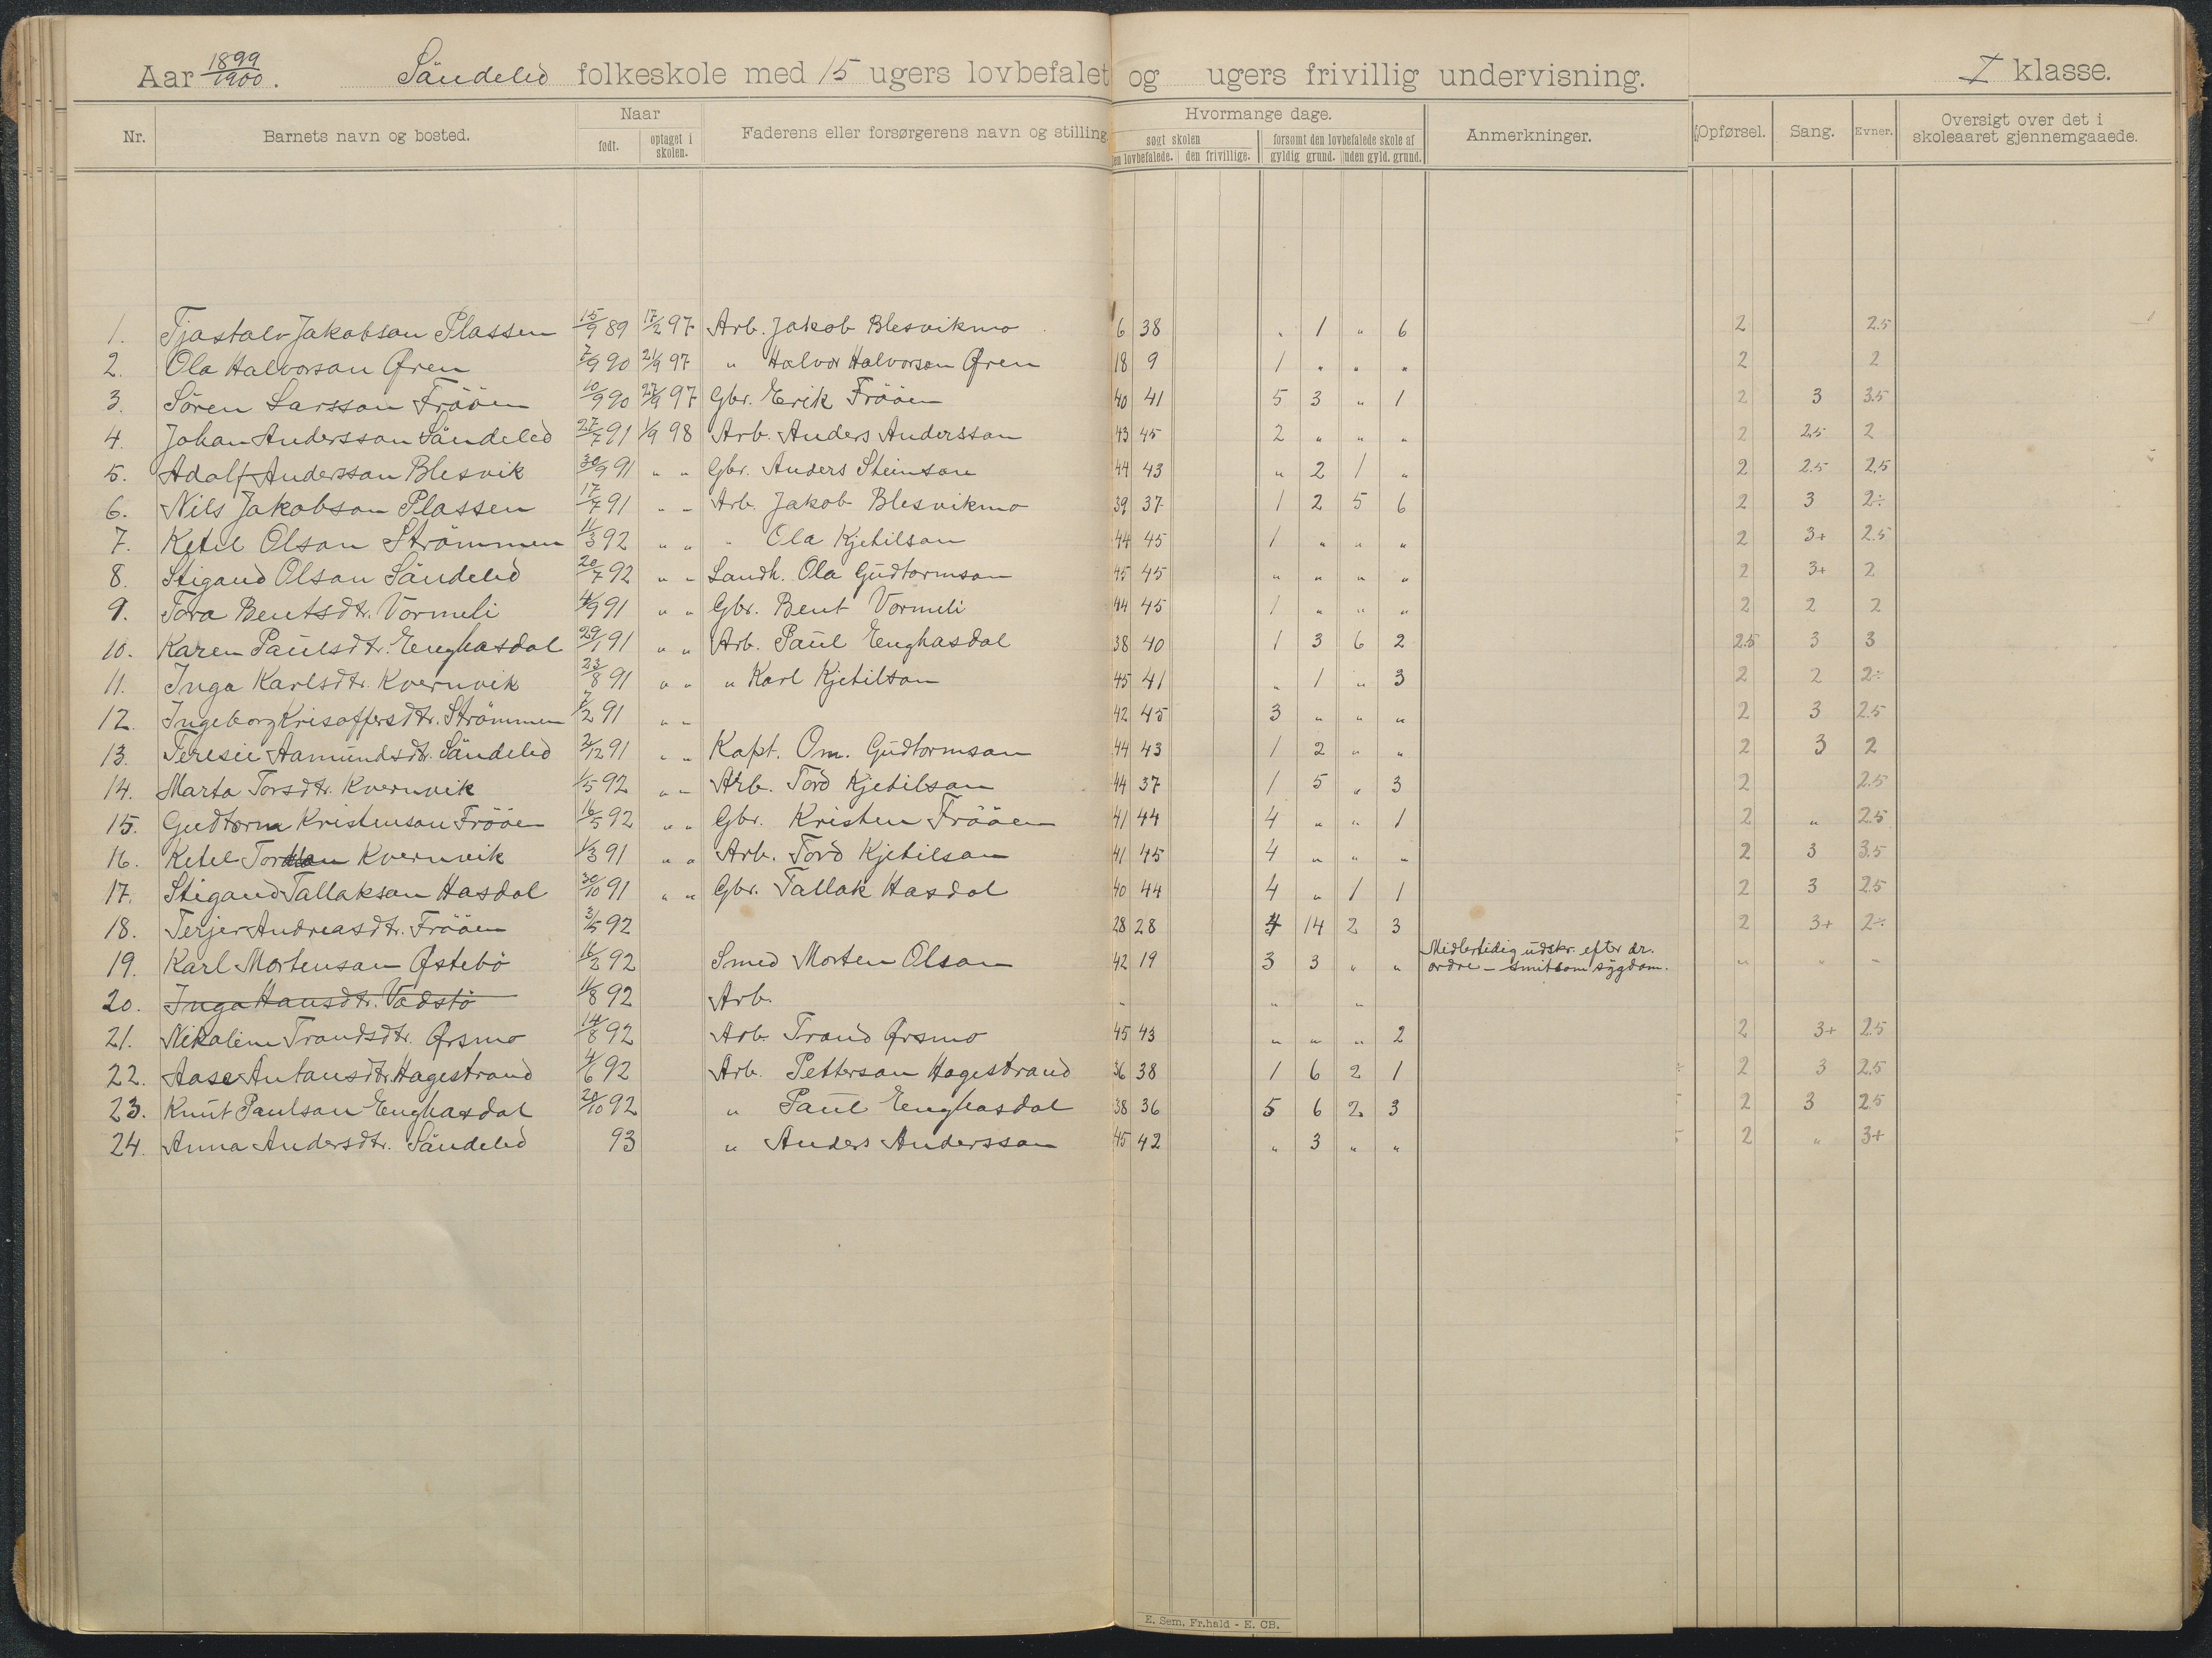 Aar 1899/1900. Söndeled folkeskole med 15 ugers lovbefalet og ugers frivillig undervisning. I klasse.
Nr. Barnets navn og bosted. Naar født. optaget i skolen. Faderens eller forsørgerens navn og stilling Hvormange dage. søgt skolen den lovbefalede. den frivillige. forsømt den lovbefalede skole af gyldig grund. uden gyld. grund. Anmerkninger. Opførsel. Sang. Evner. Oversigt over det i skoleaaret gjennemgaaede.
1. Tjostolv Jakobson Plassen 15/9 89 17/2 97 Arb. Jakob Blesvikmo 6 38 " 1 " 6 2 2.5
2. Ola Halvorson Øren 7/9 90 21/9 97 " Halvor Halvorson Øren 18 9 1 " " " 2 2
3. Sören Larsson Frööen 10/9 90 27/9 97 Gbr. Erik Frööen 40 41 5 3 " 1 2 3 3.5
4. Johan Andersson Söndeled 27/7 91 1/9 98 Arb. Anders Andersson 43 45 2 " " " 2 2.5 2
5. Adolf Andersson Blesvik 30/9 91 " " Gbr. Anders Steinson 44 43 " 2 1 " 2 2.5 2.5
6. Nils Jakobson Plassen 17/7 91 " " Arb. Jakob Blesvikmo 39 37 1 2 5 6 2 3 2÷
7. Ketil Olson Strömmen 11/3 92 " " " Ola Kjetilson 44 45 1 " " " 2 3+ 2.5
8. Stigand Olson Söndeled 20/7 92 " " Landh. Ola Gudtormson 45 45 " " " " 2 3+ 2
9. Tora Bentsdtr. Vormeli 4/9 91 " " Gbr. Bent Vormeli 44 45 1 " " " 2 2 2
10. Karen Paulsdtr. Enghasdal 29/1 91 " " Arb. Paul Enghasdal 38 40 1 3 6 2 2.5 3 3
11. Inga Karlsdtr. Kvernvik 23/8 91 " " " Karl Kjetilson 45 41 " 1 " 3 2 2 2÷
12. Ingeborg Krisoffersdtr. Strömmen 7/2 91 " " 42 45 3 " " " 2 3 2.5
13. Teresie Aamundsdtr. Söndeled 2/12 91 " " Kapt. Om. Gudtormson 44 43 1 2 " " 2 3 2
14. Marta Torsdtr. Kvernvik 1/5 92 " " Arb. Tord Kjetilson 44 37 1 5 " 3 2 2.5
15. Gudtorm Kristenson Frööen 16/5 92 " " Gbr. Kristen Frööen 41 44 4 " " 1 2 " 2.5
16. Ketel Tordson Kvernvik 1/3 91 " " Arb. Tord Kjetilson 41 45 4 " " " 2 3 3.5
17. Stigand Tallakson Hasdal 30/10 91 " " Gbr. Tallak Hasdal 40 44 4 " 1 1 2 3 2.5
18. Terjer Andreasdtr. Frööen 3/5 92 28 28 4 14 2 3 2 3+ 2÷
19. Karl Mortenson Østebö 16/2 92 Smed Morten Olson 42 19 3 3 " " Midlertidig udskr. efter dr. ordre – smitsom sygdom. " " "
20. Inga Hansdtr. Vadstö 11/8 92 Arb. " " "
21. Nikoline Trondsdtr.Ørsmo 14/8 92 Arb. Trond Ørsmo 45 43 " " " 2 2 3+ 2.5
22. Aase Antonsdtr. Hagestrand 4/6 92 Arb. Petterson Hagestrand 36 38 1 6 2 1 2 3 2.5
23. Knut Paulson Enghasdal 20/10 92 " Paul Enghasdal 38 36 5 6 2 3 2 3 2.5
24. Anna Andersdtr. Söndeled 93 " Anders Andersson 45 42 " 3 " " 2 " 3+
E. Sem, Fr.hald - E. CB.